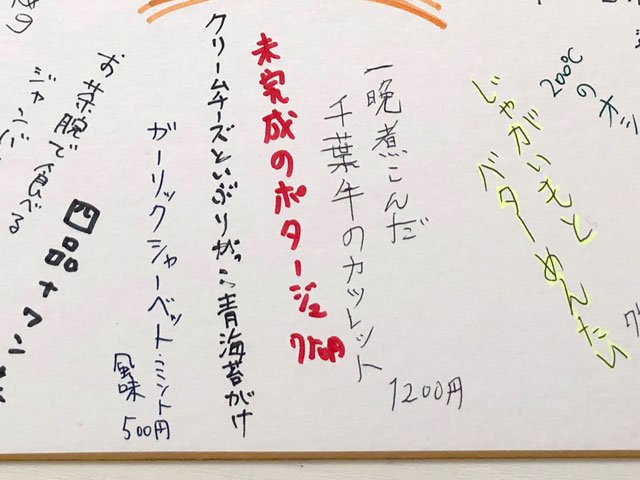 200℃
のオ
じゃがいもと
バターめんたい
一晩煮こんだ
千葉牛のカツレット
1200円
未完成のポタージュ
750円
クリームチーズといぶりがっこ青海苔がけ
ガーリックシャーベット・ミント
風味
500円
お茶腕で食べる
ジャンバ
四品